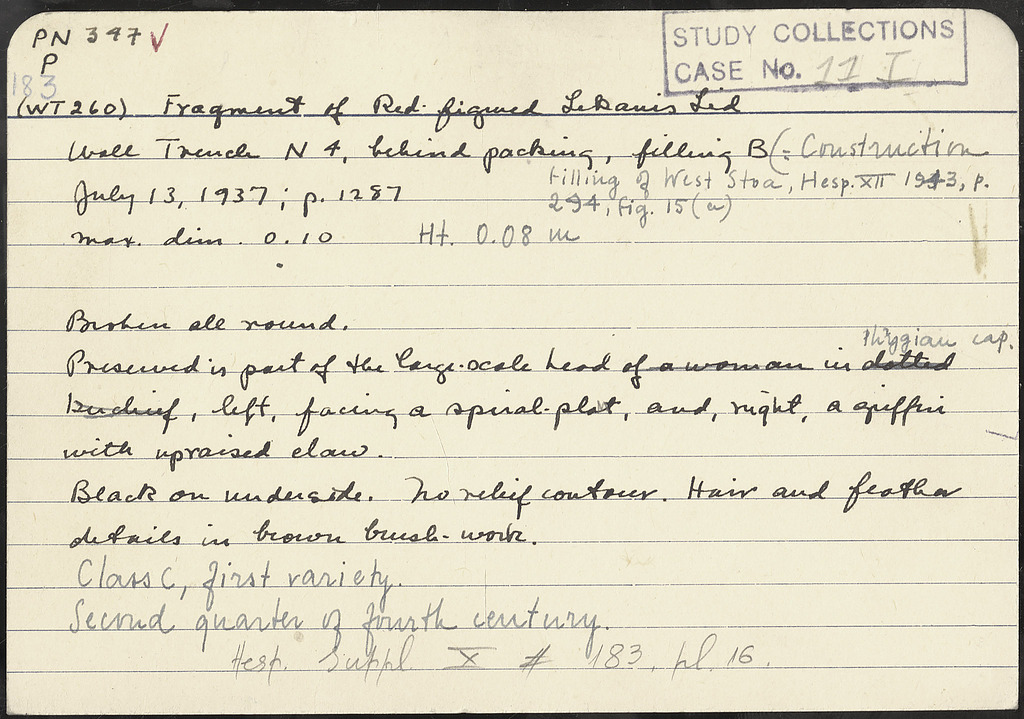 PN 347 ✓
P
183
STUDY COLLECTIONS
CASE No. 11 I
(WT 260) Fragment of Red-figured Lekanis Lid
Wall Trench N 4, behind packing, filling B (= Construction
filling of West Stoa, Hesp. XII 1943, p.
294, fig. 15 (a)
July 13, 1937; p. 1287
max. dim. 0.10 Ht. 0.08 m
Broken all round.
Phrygian cap.
Preserved is part of the large-scale head of a woman in dotted
kerchief, left, facing a spiral-plat, and, right, a griffin
with upraised claw.
Black on underside. No relief contour. Hair and feather
details in brown brush-work.
Class C, first variety.
Second quarter of fourth century.
Hesp. Suppl. X # 183, pl. 16.